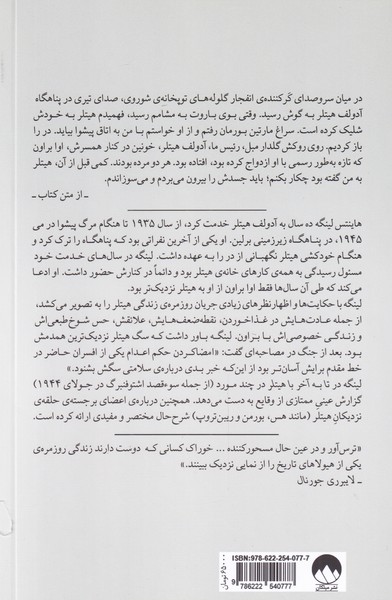 در میان سروصدای کَرکننده‌ی انفجار گلوله‌های توپخانه‌ی شوروی، صدای تیری در پناهگاه
آدولف هیتلر به گوش رسید. وقتی بوی باروت به مشامم رسید، فهمیدم هیتلر به خودش
شلیک کرده است. سراغ مارتین بورمان رفتم و از او خواستم با من به اتاق پیشوا بیاید. در را
باز کردیم. روی روکش گلدار مبل، رئیس ما، آدولف هیتلر، خونین در کنار همسرش، اوا براون
که تازه به‌طور رسمی با او ازدواج کرده بود، افتاده بود. هر دو مرده بودند. کمی قبل از آن، هیتلر
به من گفته بود چکار بکنم؛ باید جسدش را بیرون می‌بردم و می‌سوزاندم.
ـ از متن کتاب ـ
هاینتس لینگه ده سال به آدولف هیتلر خدمت کرد، از سال ۱۹۳۵ تا هنگام مرگ پیشوا در می
۱۹۴۵، در پناهگاه زیرزمینی برلین. او یکی از آخرین نفراتی بود که پناهگاه را ترک کرد و
هنگام خودکشی هیتلر نگهبانی از در را به عهده داشت. لینگه در سال‌های خدمت
مسئول رسیدگی به همه‌ی کارهای خانه‌ی هیتلر بود و دائماً در کنارش حضور داشت. او ادعا
می‌کند که طی آن سال‌ها فقط اوا براون از او به هیتلر نزدیک‌تر بود.
لینگه با حکایت‌ها و اظهارنظرهای زیادی جریان روزمره‌ی زندگی هیتلر را به تصویر می‌کشد،
از جمله عادت‌هایش در غذاخوردن، نقطه‌ضعف‌هایش، علائقش، حس شوخ‌طبعی‌اش
و زندگی خصوصی‌اش با براون. لینگه باور داشت که سگ هیتلر نزدیک‌ترین همدمش
بود. بعد از جنگ در مصاحبه‌ای گفت: «امضاکردن حکم اعدام یکی از افسران حاضر در
خط مقدم برایش آسان‌تر بود از این‌که خبر بدی درباره‌ی سلامتی سگش بشنود.»
لینگه در تا به آخر با هیتلر در چند مورد (از جمله سوءقصد اشتوفنبرگ در جولای ۱۹۴۴)
گزارش عینی ممتازی از وقایع به دست می‌دهد. همچنین درباره‌ی اعضای برجسته‌ی حلقه‌ی
نزدیکان هیتلر (مانند هس، بورمن و ریبن‌تروپ) شرح‌حال مختصر و مفیدی ارائه کرده است.
«ترس‌آور و در عین حال مسحورکننده ... خوراک کسانی که دوست دارند زندگی روزمره‌ی
یکی از هیولاهای تاریخ را از نمایی نزدیک ببینند.»
ـ لایبرری جورنال ـ
ISBN: 978-622-254-077-7
9 786222 540777
۶۵۰۰۰ تومان
نشر میلکان